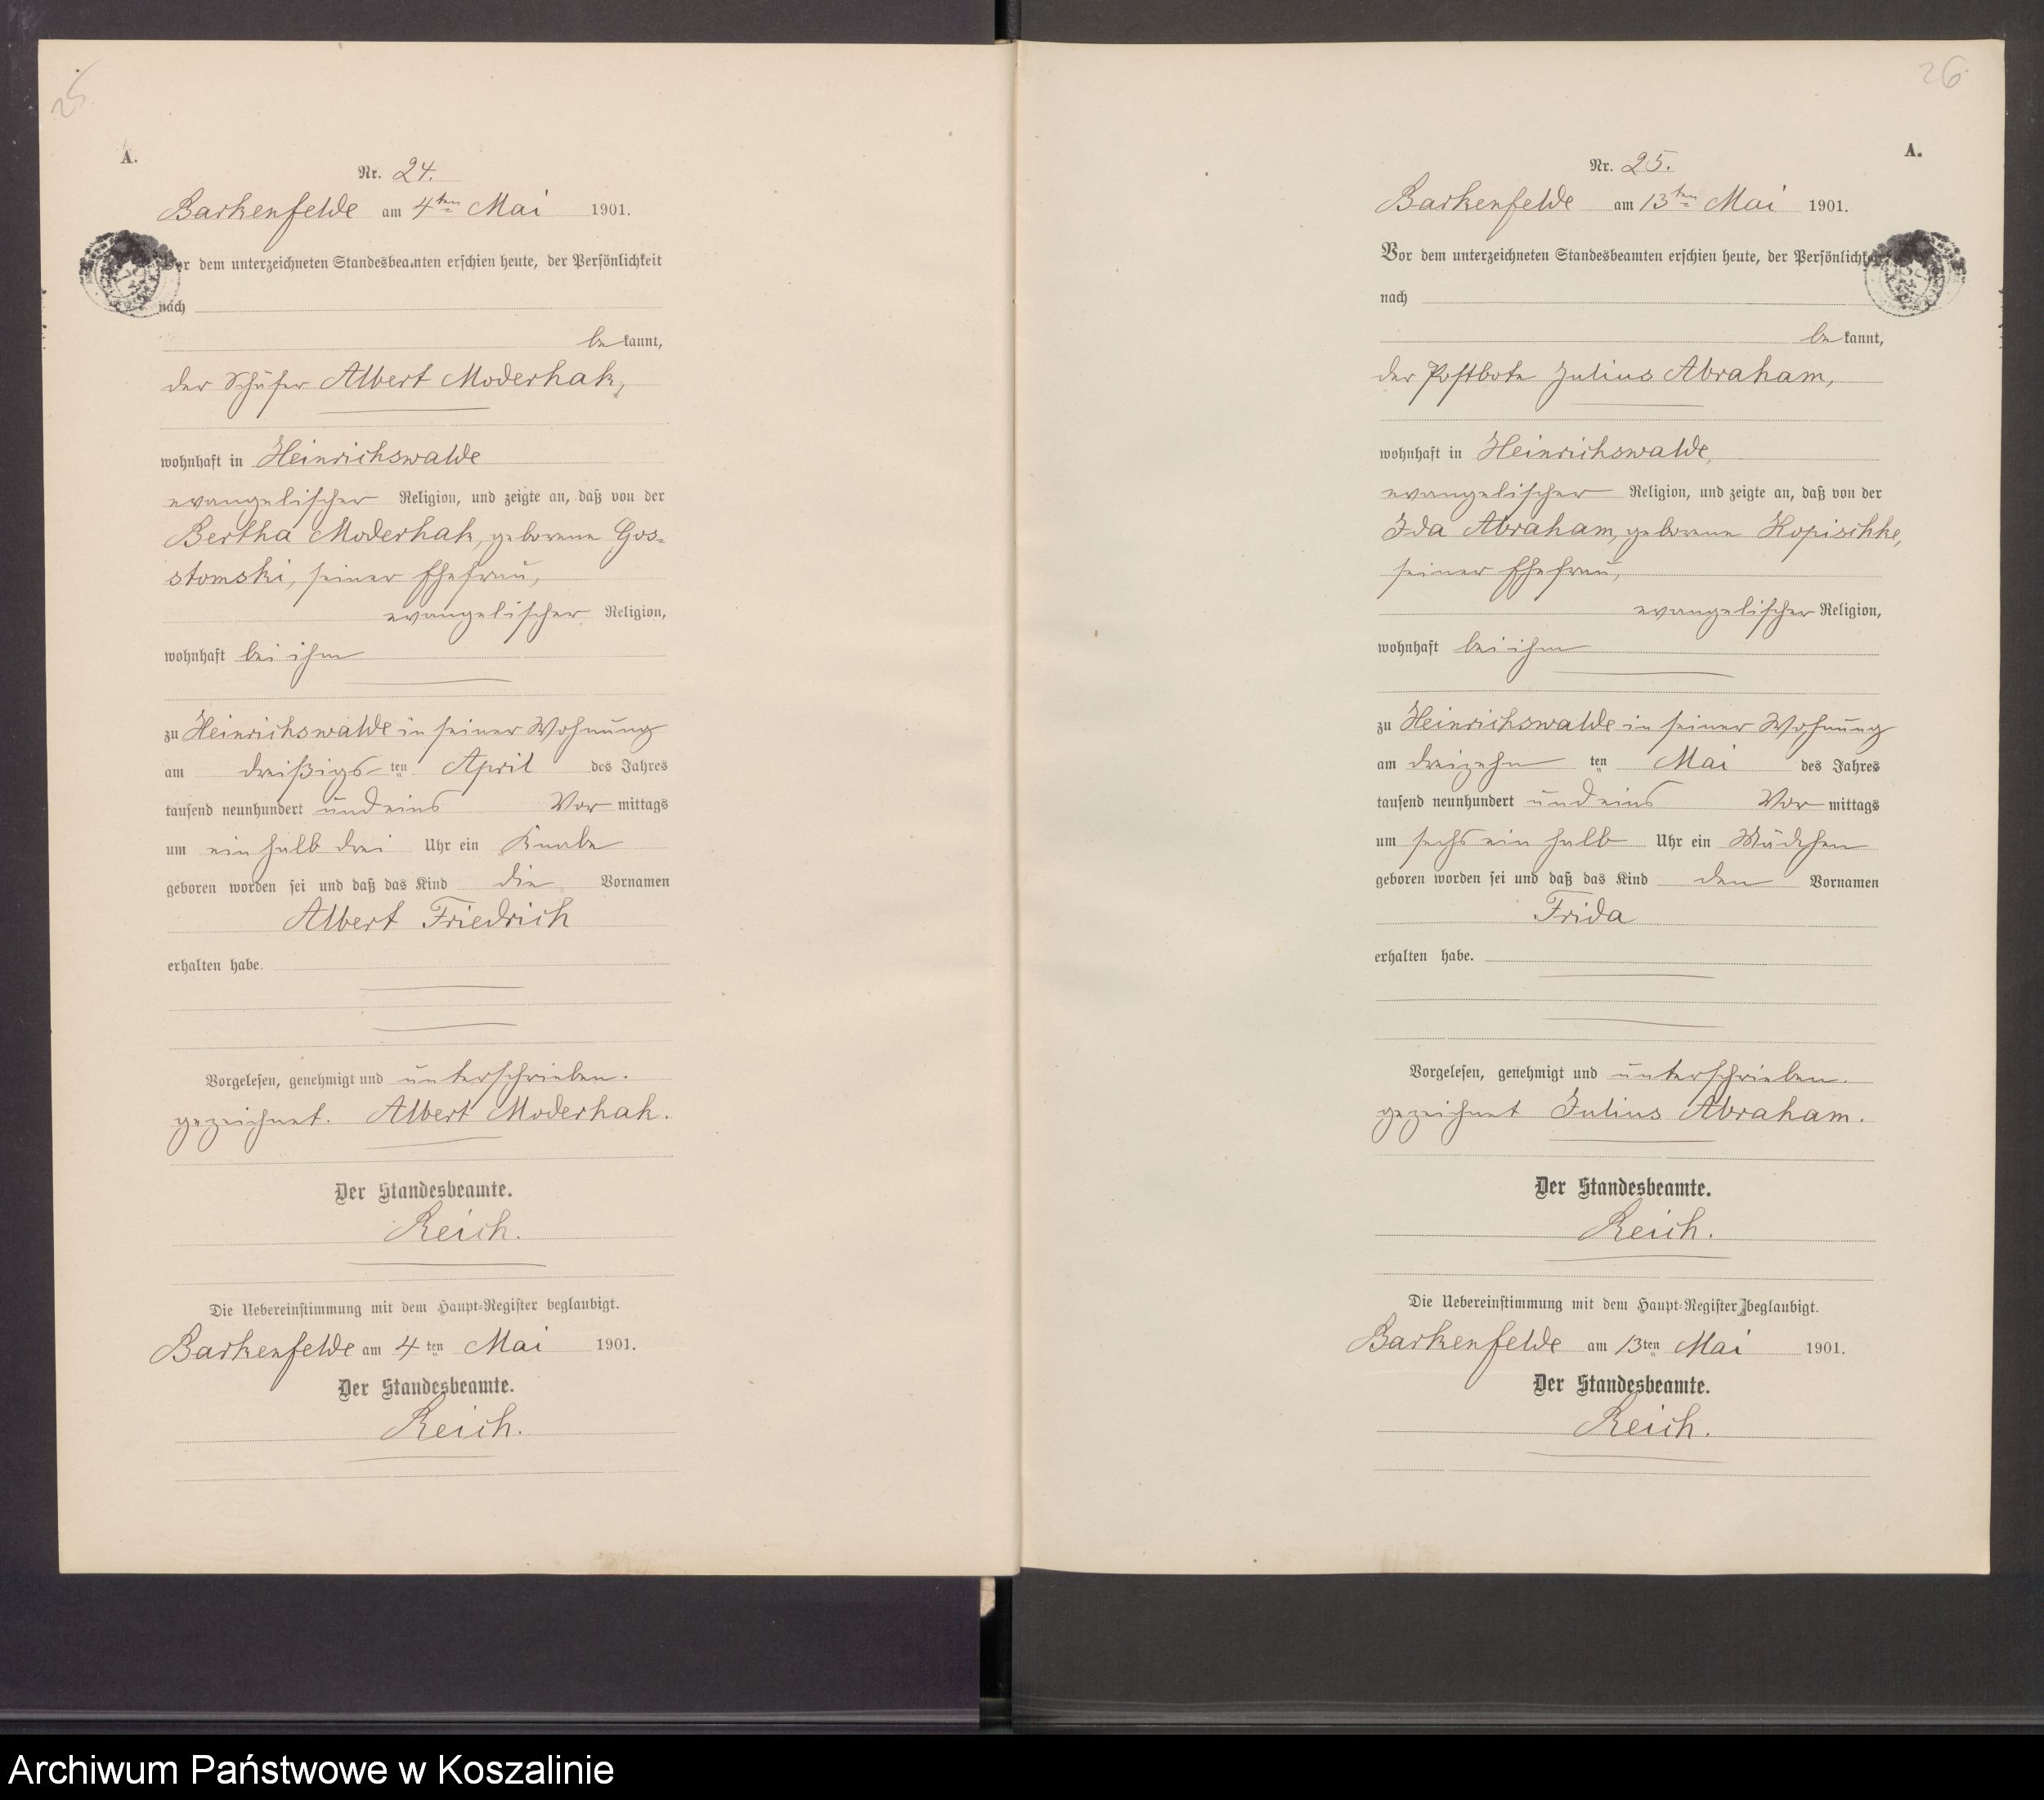 25
A.
Nr. 24.
Barkenfelde am 4ten Mai 1901.
Vor dem unterzeichneten Standesbeamten erschien heute, der Persönlichkeit
nach
bekannt,
der Schäfer Albert Moderhak,
wohnhaft in Heinrichswalde
evangelischer Religion, und zeigte an, daß von der
Bertha Moderhak, geborene Gos=
stomski, seiner Ehefrau,
evangelischer Religion,
wohnhaft bei ihm
zu Heinrichswalde in seiner Wohnung
am dreißigsten April des Jahres
tausend neunhundert und eins Vormittags
um ein halb drei Uhr ein Knabe
geboren worden sei und daß das Kind die Vornamen
Albert Friedrich
erhalten habe.
Vorgelesen, genehmigt und unterschrieben.
gezeichnet. Albert Moderhak.
Der Standesbeamte.
Reich.
Die Uebereinstimmung mit dem Haupt=Register beglaubigt.
Barkenfelde am 4ten Mai 1901.
Der Standesbeamte.
Reich.
26
A.
Nr. 25.
Barkenfelde am 13ten Mai 1901.
Vor dem unterzeichneten Standesbeamten erschien heute, der Persönlichkeit
nach
bekannt,
der Postbote Julius Abraham,
wohnhaft in Heinrichswalde,
evangelischer Religion, und zeigte an, daß von der
Ida Abraham, geborene Kopischke,
seiner Ehefrau,
evangelischer Religion,
wohnhaft bei ihm
zu Heinrichswalde in seiner Wohnung
am dreizehnten Mai des Jahres
tausend neunhundert und eins Vormittags
um sechs ein halb Uhr ein Mädchen
geboren worden sei und daß das Kind den Vornamen
Frida
erhalten habe.
Vorgelesen, genehmigt und unterschrieben.
gezeichnet Julius Abraham.
Der Standesbeamte.
Reich.
Die Uebereinstimmung mit dem Haupt=Register beglaubigt.
Barkenfelde am 13ten Mai 1901.
Der Standesbeamte.
Reich.
Archiwum Państwowe w Koszalinie